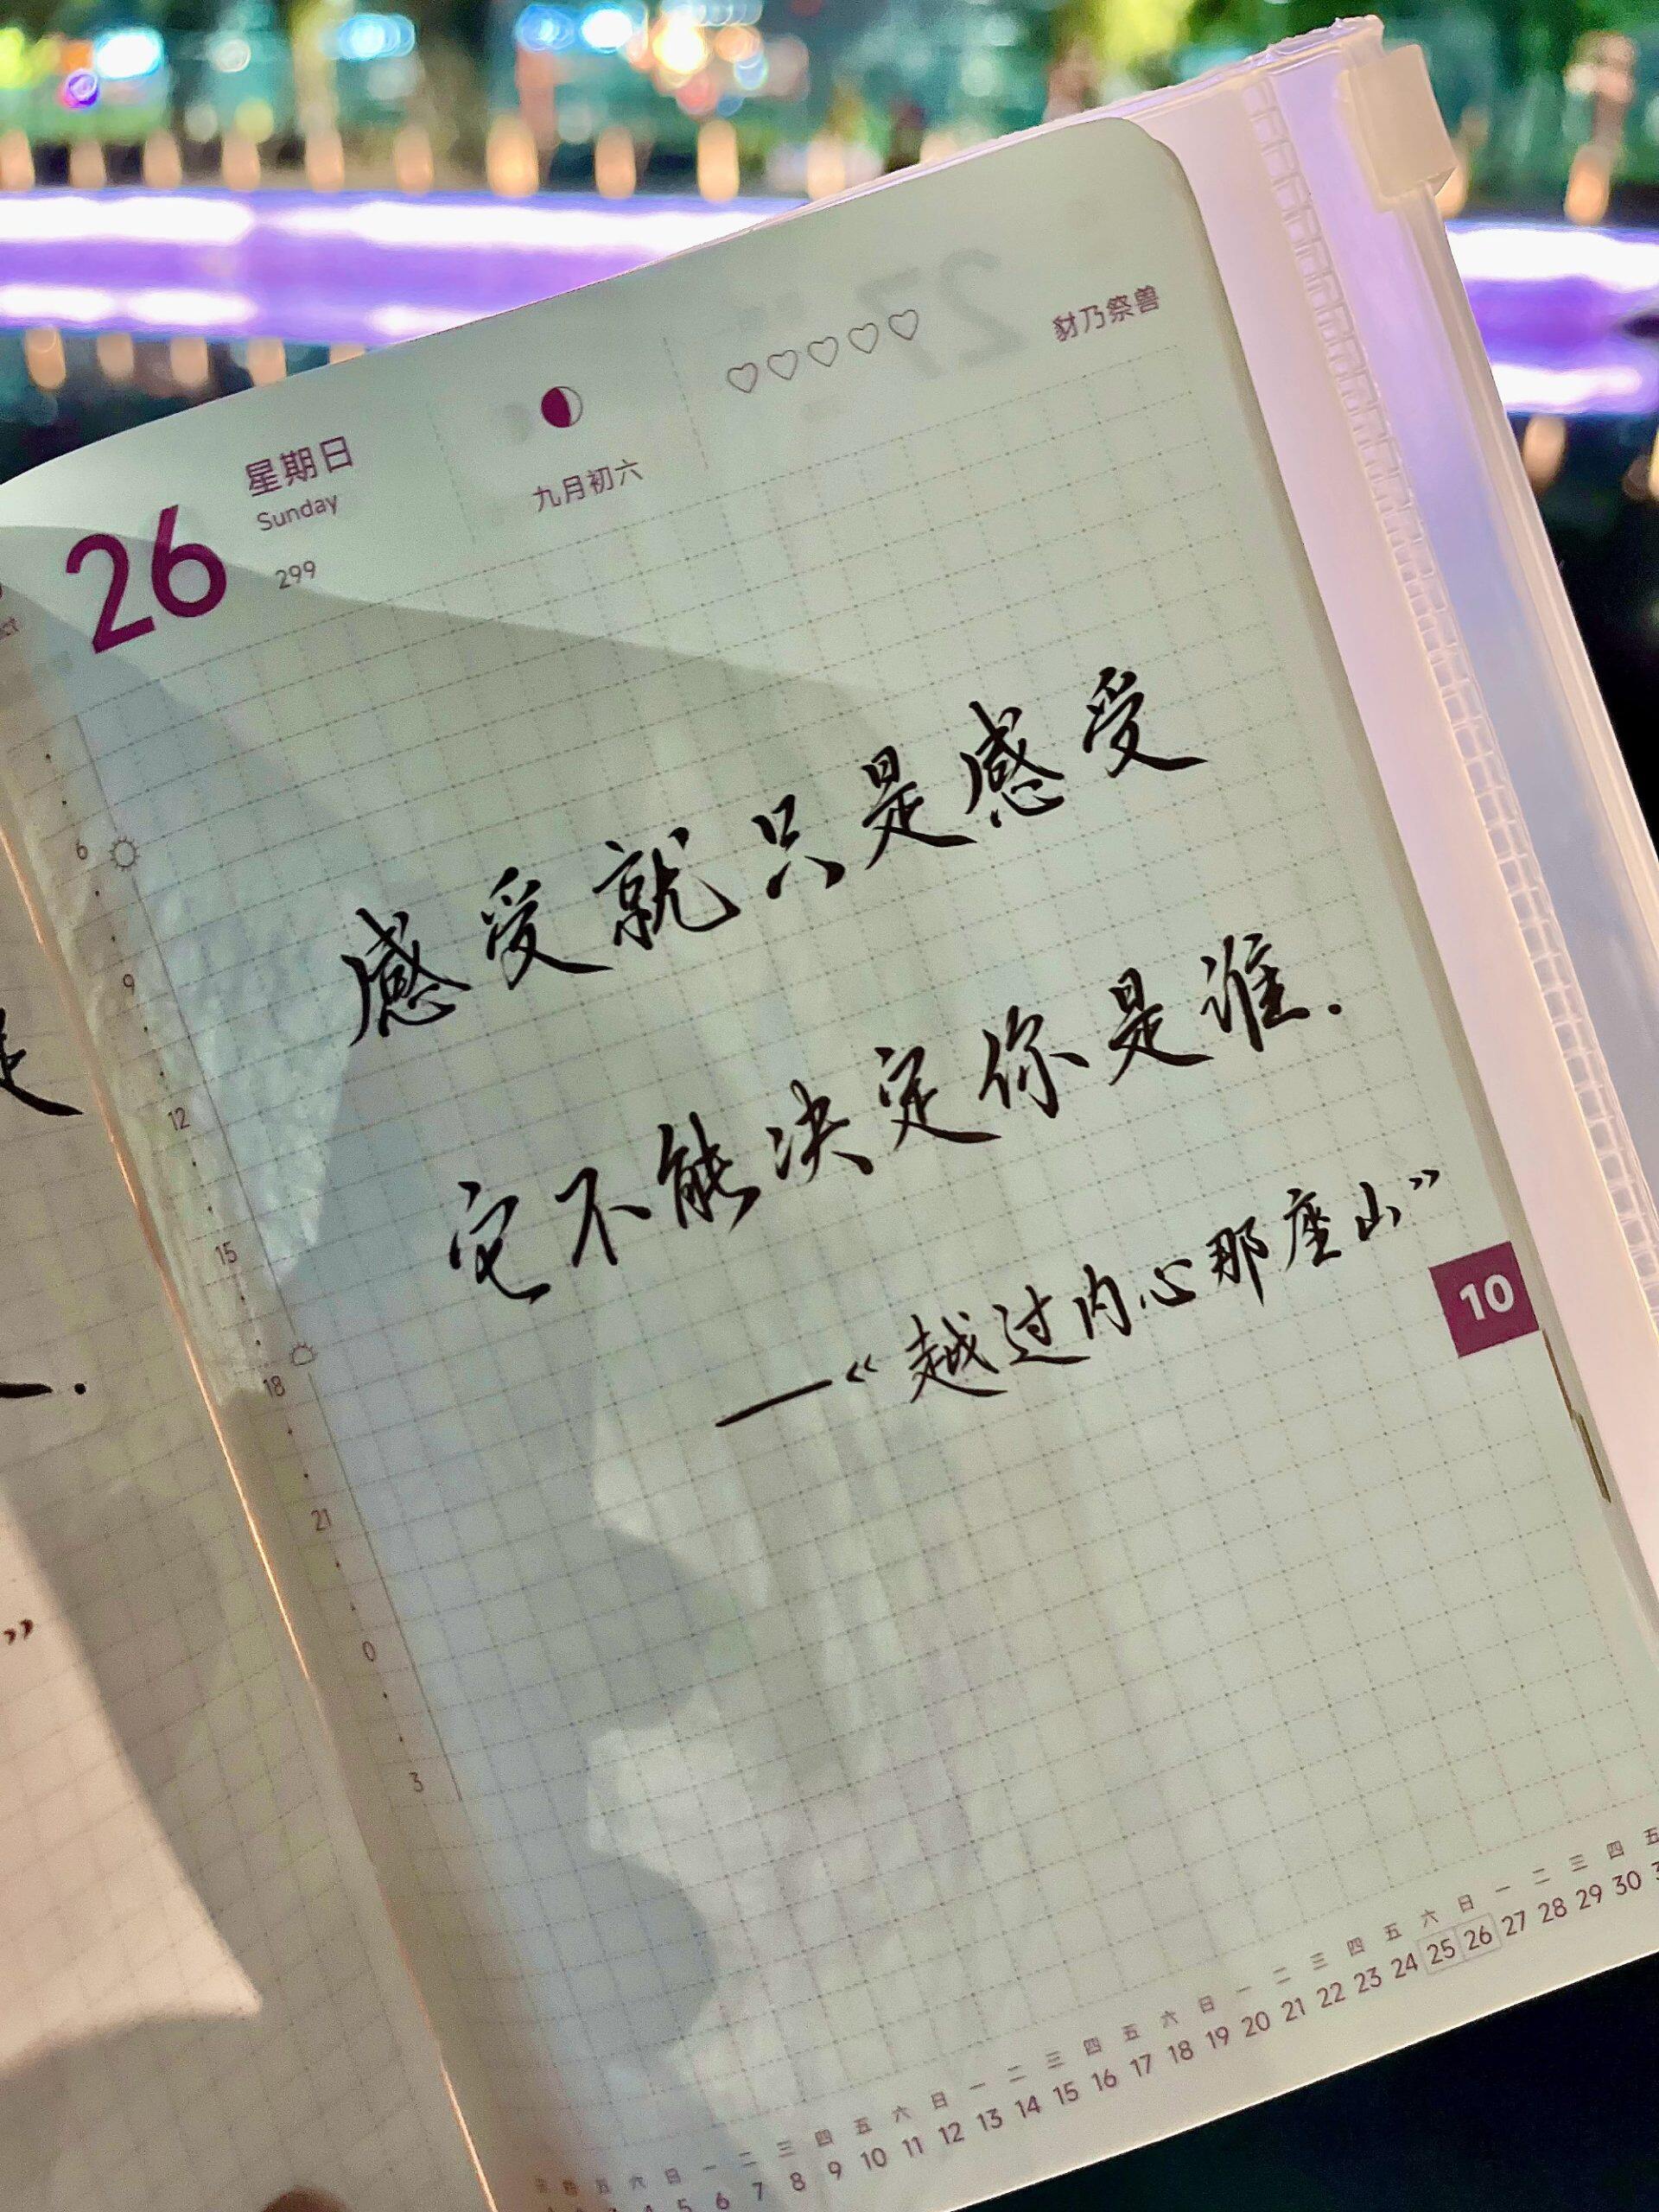 26
星期日
Sunday
299
九月初六
豺乃祭兽
27
感受就只是感受
它不能决定你是谁.
—《越过内心那座山”
10
6
9
12
15
18
21
0
3
是
.
”
五 六 日 一 二 三 四 五 六 日 一 二 三 四 五 六 日 一 二 三 四 五 六 日 一 二 三 四 五
4 5 6 7 8 9 10 11 12 13 14 15 16 17 18 19 20 21 22 23 24 25 26 27 28 29 30